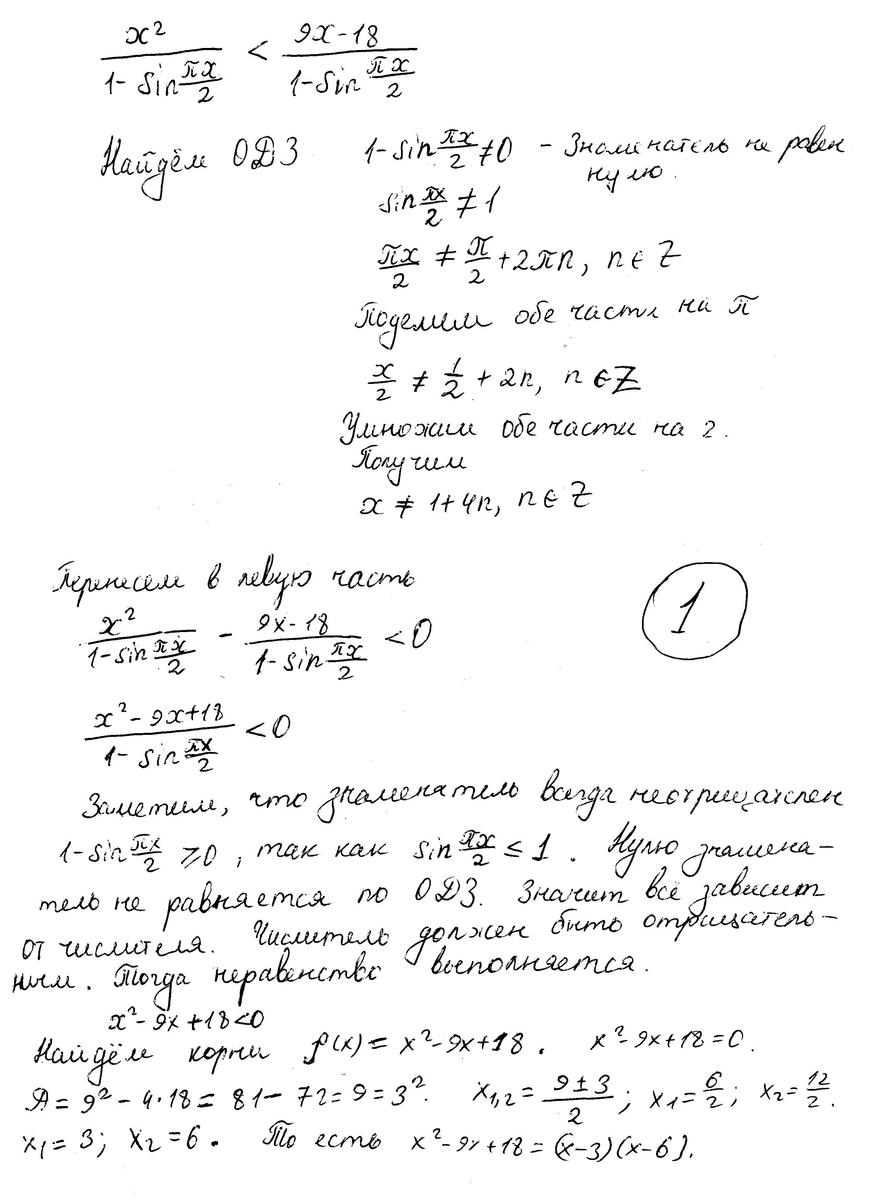 x²/(1- sin πx/2) < (9x-18)/(1-sin πx/2)
Найдём ОДЗ 1-sin πx/2 ≠0 - Знаменатель не равен
нулю.
sin πx/2 ≠ 1
πx/2 ≠ π/2 +2πn, n∈Z
Поделим обе части на π
x/2 ≠ 1/2 + 2n, n∈Z
Умножим обе части на 2.
Получим
x ≠ 1+4n, n∈Z
Перенесем в левую часть
x²/(1-sin πx/2) - (9x-18)/(1-sin πx/2) <0
1
(x²-9x+18)/(1- sin πx/2) <0
Заметим, что знаменатель всегда неотрицателен
1-sin πx/2 ⩾0, так как sin πx/2 ≤ 1. Нулю знамена-
тель не равняется по ОДЗ. Значит всё зависит
от числителя. Числитель должен быть отрицатель-
ным. Тогда неравенство выполняется.
x²-9x+18<0
Найдём корни f(x)= x²-9x+18. x²-9x+18=0.
Д= 9²-4·18= 81-72=9=3². x₁,₂= (9±3)/2; x₁=6/2; x₂=12/2.
x₁=3; x₂=6. То есть x²-9x+18=(x-3)(x-6).